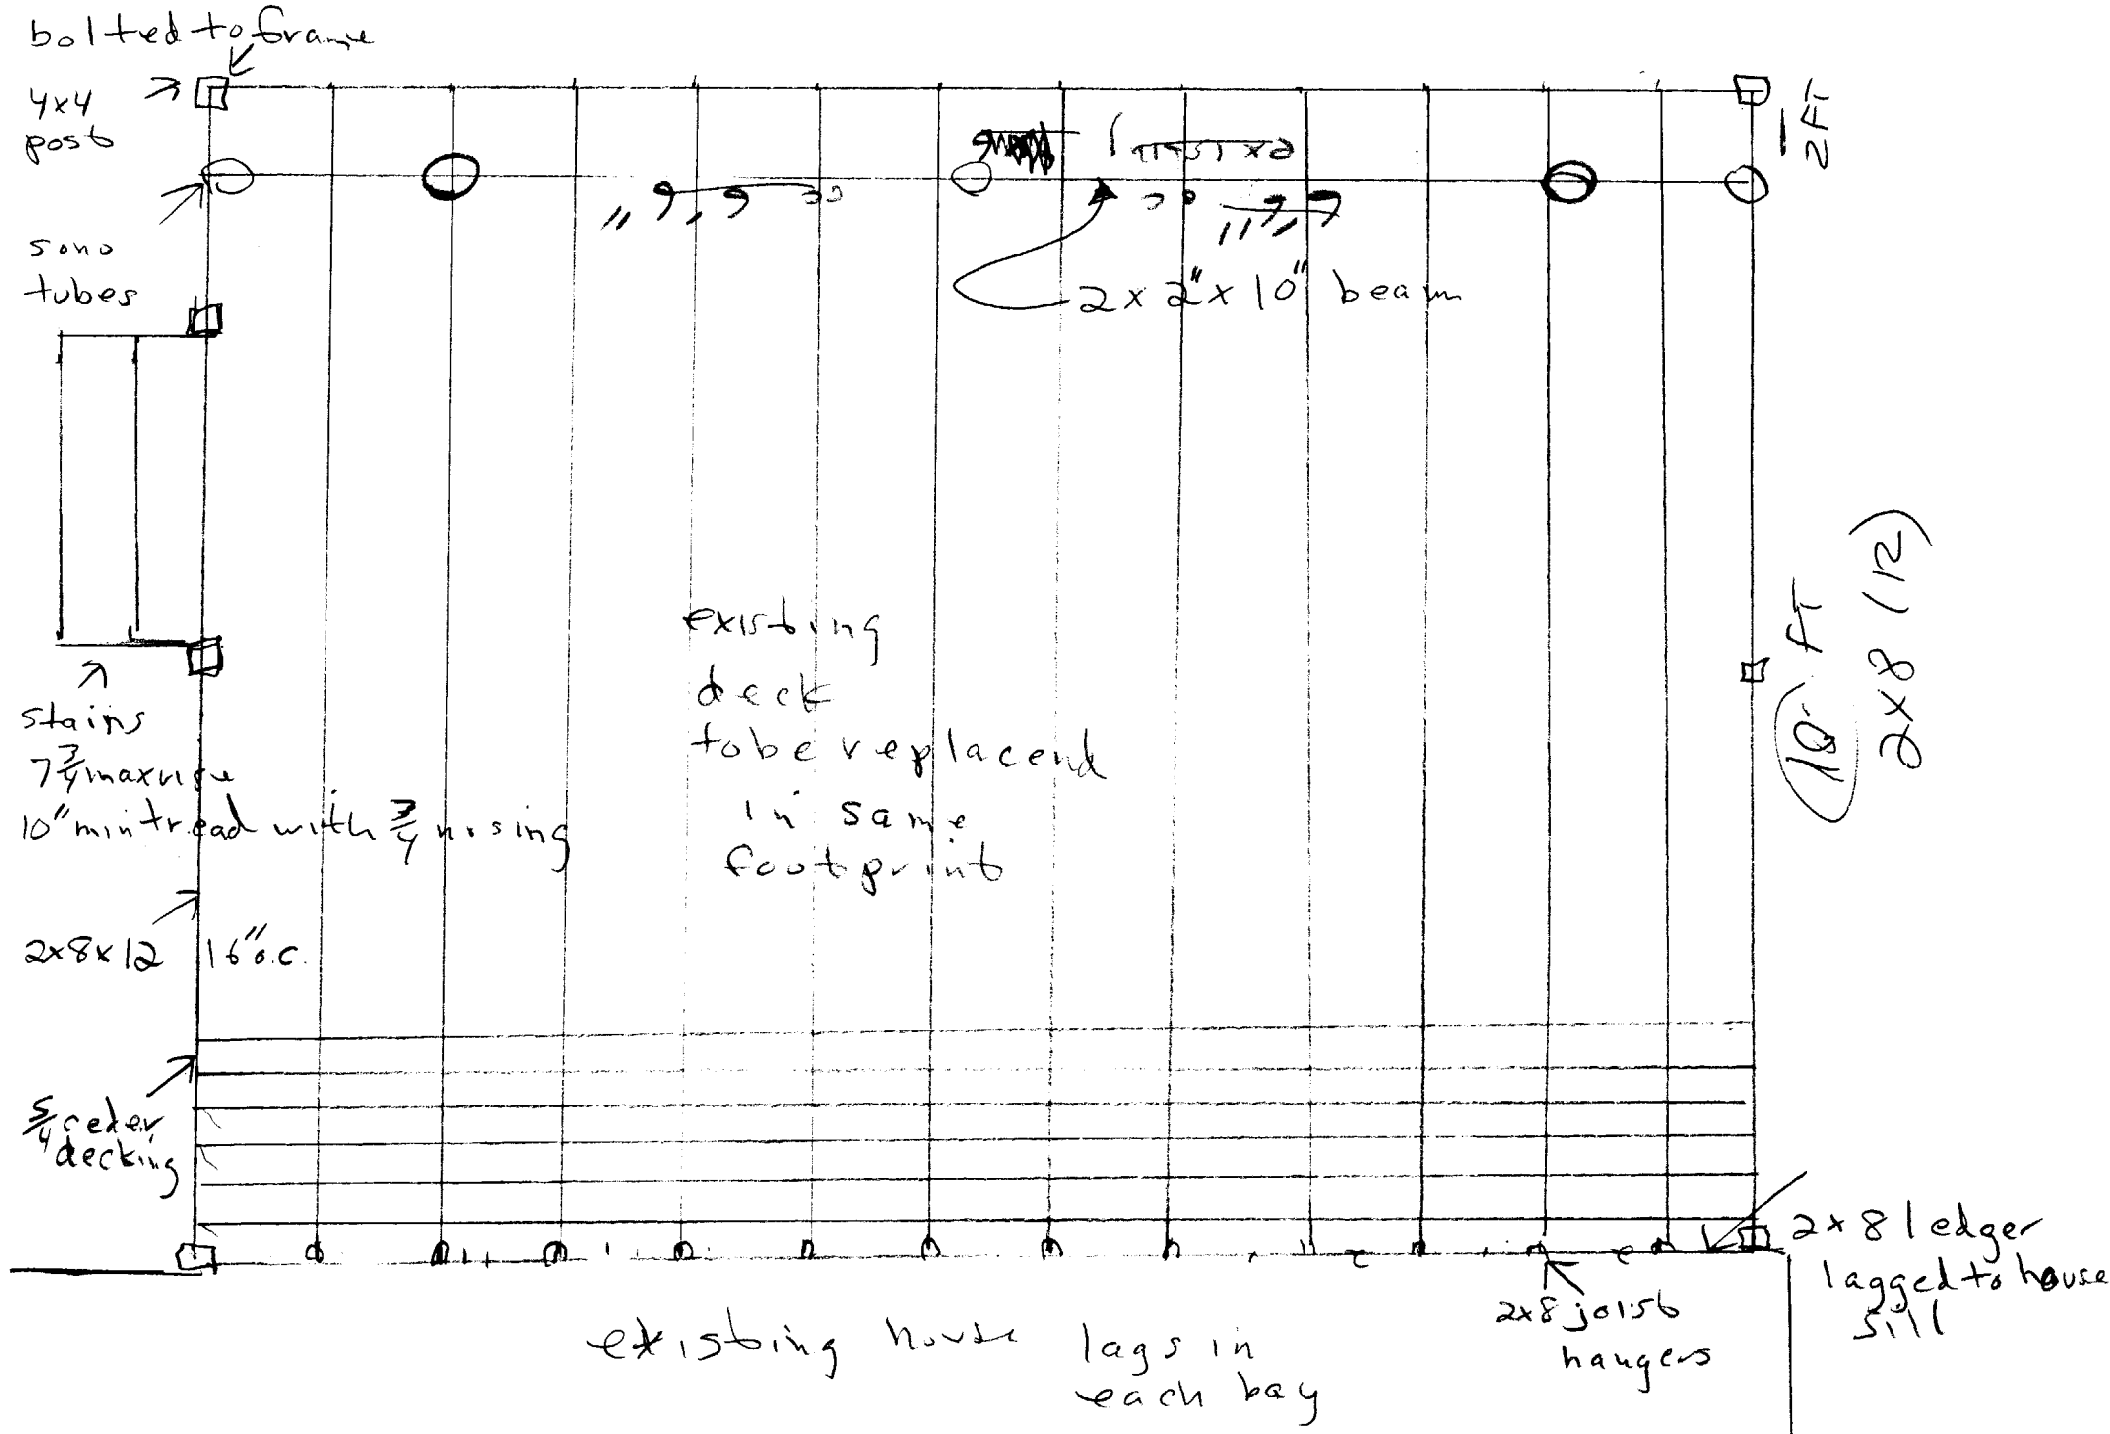 bolted to frame
4x4
post
2FT
sono
tubes
2 x 2" x 10" beam
existing
deck
to be replacend
in same
footprint
10 FT
2x8 (12)
stairs
7 3/4 max rise
10" min tread with 3/4 nosing
2x8x12 16" o.c.
5/4 ceder
decking
2x8 ledger
lagged to house
sill
2x8 joist
hangers
existing house
lags in
each bay